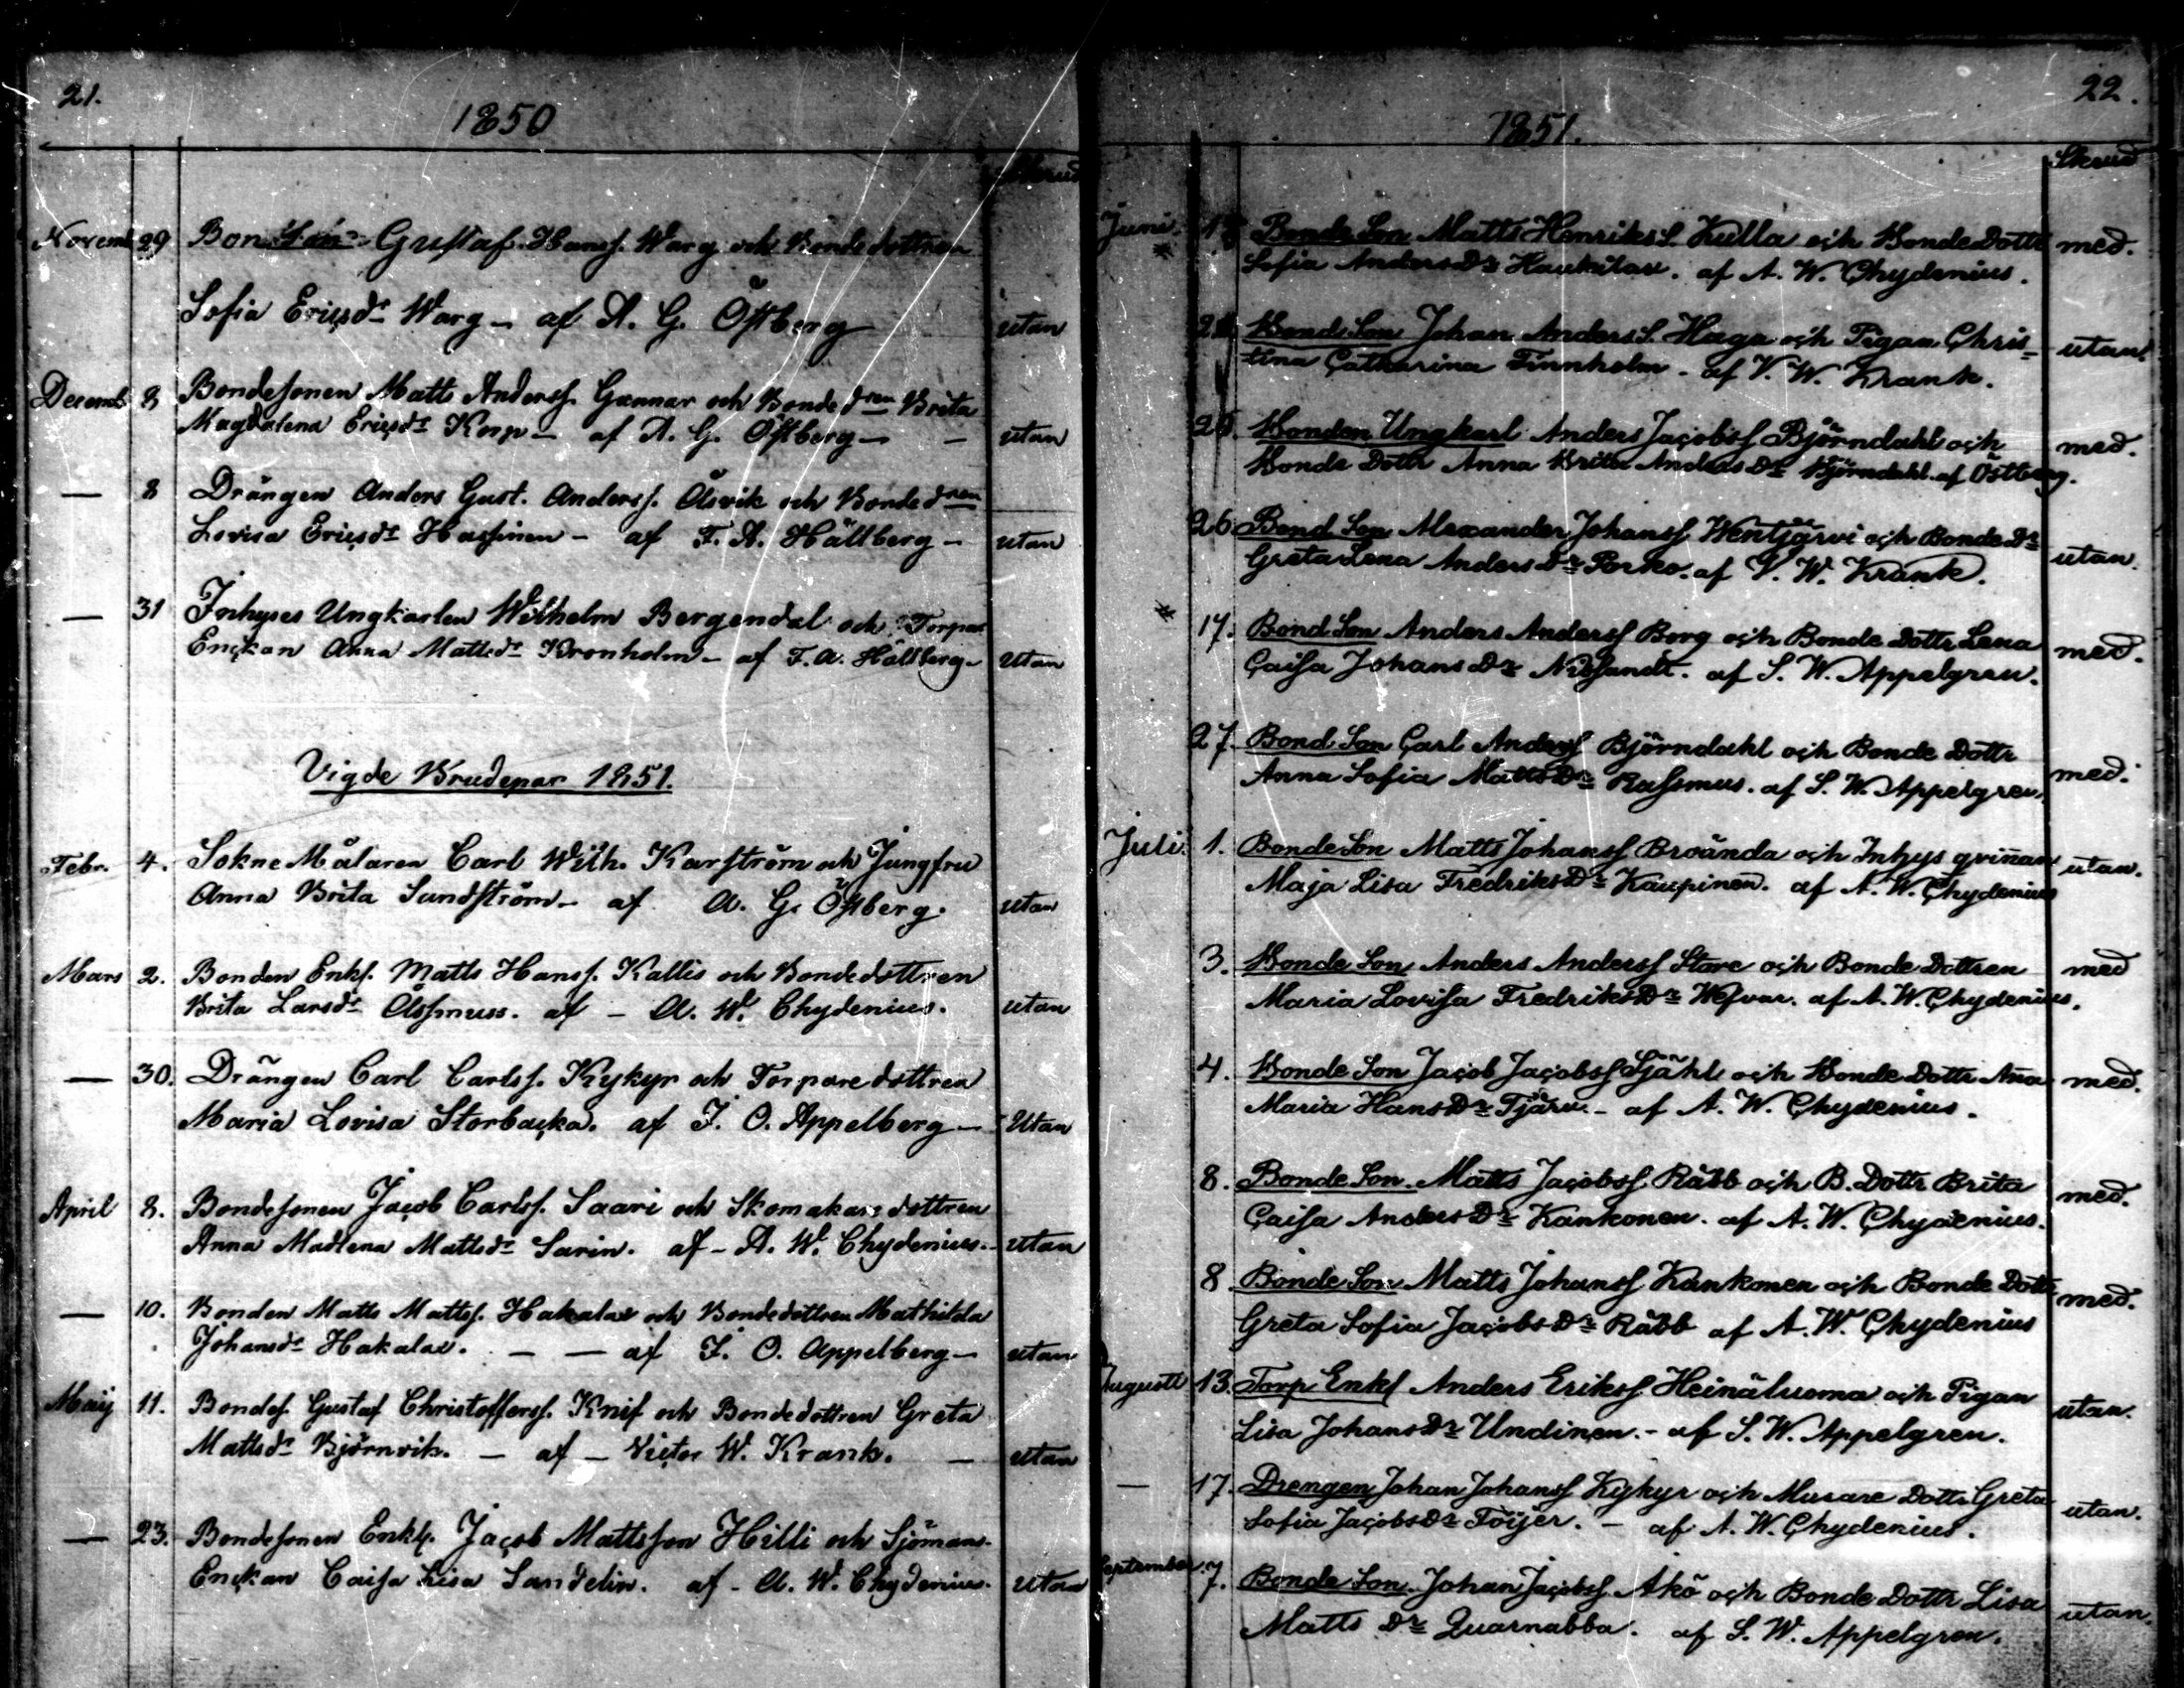 21.
1850
Novemb 29 Bon Son Gustaf Hansf. Warg och Bondedottren
Sofia Ericsdr Warg - af A. G. Östberg utan
Decemb 8 Bondesonen Matts Andersf. Gunnar och Bondedren Brita
Magdalena Ericsdr Korp - af A. G. Östberg - - utan
— 8 Drängen Anders Gust. Andersf. Åsvik och Bondedren
Lovisa Ericsdr Hassinen - af F. A. Hällberg - utan
— 31 Inhyses Ungkarlen Wilhelm Bergendal och Torpar
Enckan Anna Mattsdr Kronholm - af F. A. Hällberg - utan
Vigde Brudepar 1851.
Febr. 4. Sokne Målaren Carl Wilh. Karström och Jungfru
Anna Brita Sundström - af A. G. Östberg. utan
Mars 2. Bonden Enkf. Matts Hansf. Kallis och Bondedottren
Brita Larsdr Åssmuss. af - A. W. Chydenius. utan
— 30. Drängen Carl Carlsf. Kykyr och Torparedottren
Maria Lovisa Storbacka. af J. O. Appelberg - Utan
April 8. Bondesonen Jacob Carlsf. Saari och Skomakaredottren
Anna Madlena Mattsdr Sarin. af - A. W. Chydenius. - utan
— 10. Bonden Matts Mattsf. Hakalax och Bondedottren Mathilda
Johansdr Hakalax. - - af J. O. Appelberg - utan
Maij 11. Bondes. Gustaf Christoffersf. Knif och Bondedottren Greta
Mattsdr Björnvik. - af - Victor W. Krank. - utan
— 23. Bondesonen Enkf. Jacob Mattsson Hilli och Sjömans-
Enckan Caisa Lisa Sandelin. af - A. W. Chydenius. utan
22.
1851.
Skrud
Juni. Bonde Son Matts Henriksf. Kulla och Bonde Dottr med.
Sofia Anders Dr Haukilax. af A. W. Chydenius.
Bond Son Johan Andersf. Haga och Pigan Chris- utan.
tina Catharina Finnholm. af V. W. Krank.
Bonden Ungkarl Anders Jacobsf Björndahl och med.
Bonde Dottr Anna Brita Anders Dr Björndahl. af Östberg.
26 Bond Son Alexander Johansf Wentjärvi och Bonde Dr utan.
Greta Lena Anders Dr Porko. af V. W. Krank.
17. Bond Son Anders Andersf Borg och Bonde Dottr Lena med.
Caisa Johans Dr Nissundt. af S. W. Appelgren.
27. Bond Son Carl Andersf Björndahl och Bonde Dottr med.
Anna Sofia Matts Dr Rassmus. af S. W. Appelgren.
Juli. 1. Bonde Son Matts Johansf Broända och Inhys qvinnan utan.
Maja Lisa Fredriks Dr Kaupinen. af A. W. Chydenius
3. Bonde Son Anders Andersf Store och Bonde Dottren med
Maria Lovisa Fredriks Dr Wefvar. af A. W. Chydenius.
4. Bonde Son Jacob Jacobsf Sjähl och Bonde Dottr Ana med.
Maria Hans Dr Tjäru. - af A. W. Chydenius.
8. Bonde Son. Matts Jacobsf. Råbb och B. Dottr Brita med.
Caisa Anders Dr Kankonen. af A. W. Chydenius.
8 Bonde Son Matts Johansf Kankonen och Bonde Dottr med.
Greta Sofia Jacobs Dr Råbb af A. W. Chydenius
Augusti 13. Torp Enkf Anders Eriksf. Heinäluoma och Pigan utan.
Lisa Johans Dr Undinen. - af S. W. Appelgren.
— 17. Drengen Johan Johansf Kykyr och Murare Dottr Greta utan.
Sofia Jacobs Dr Töijer. - af A. W. Chydenius.
September. 7. Bonde Son. Johan Jacobsf. Åkö och Bonde Dottr Lisa utan.
Matts Dr Quarnabba. af S. W. Appelgren.